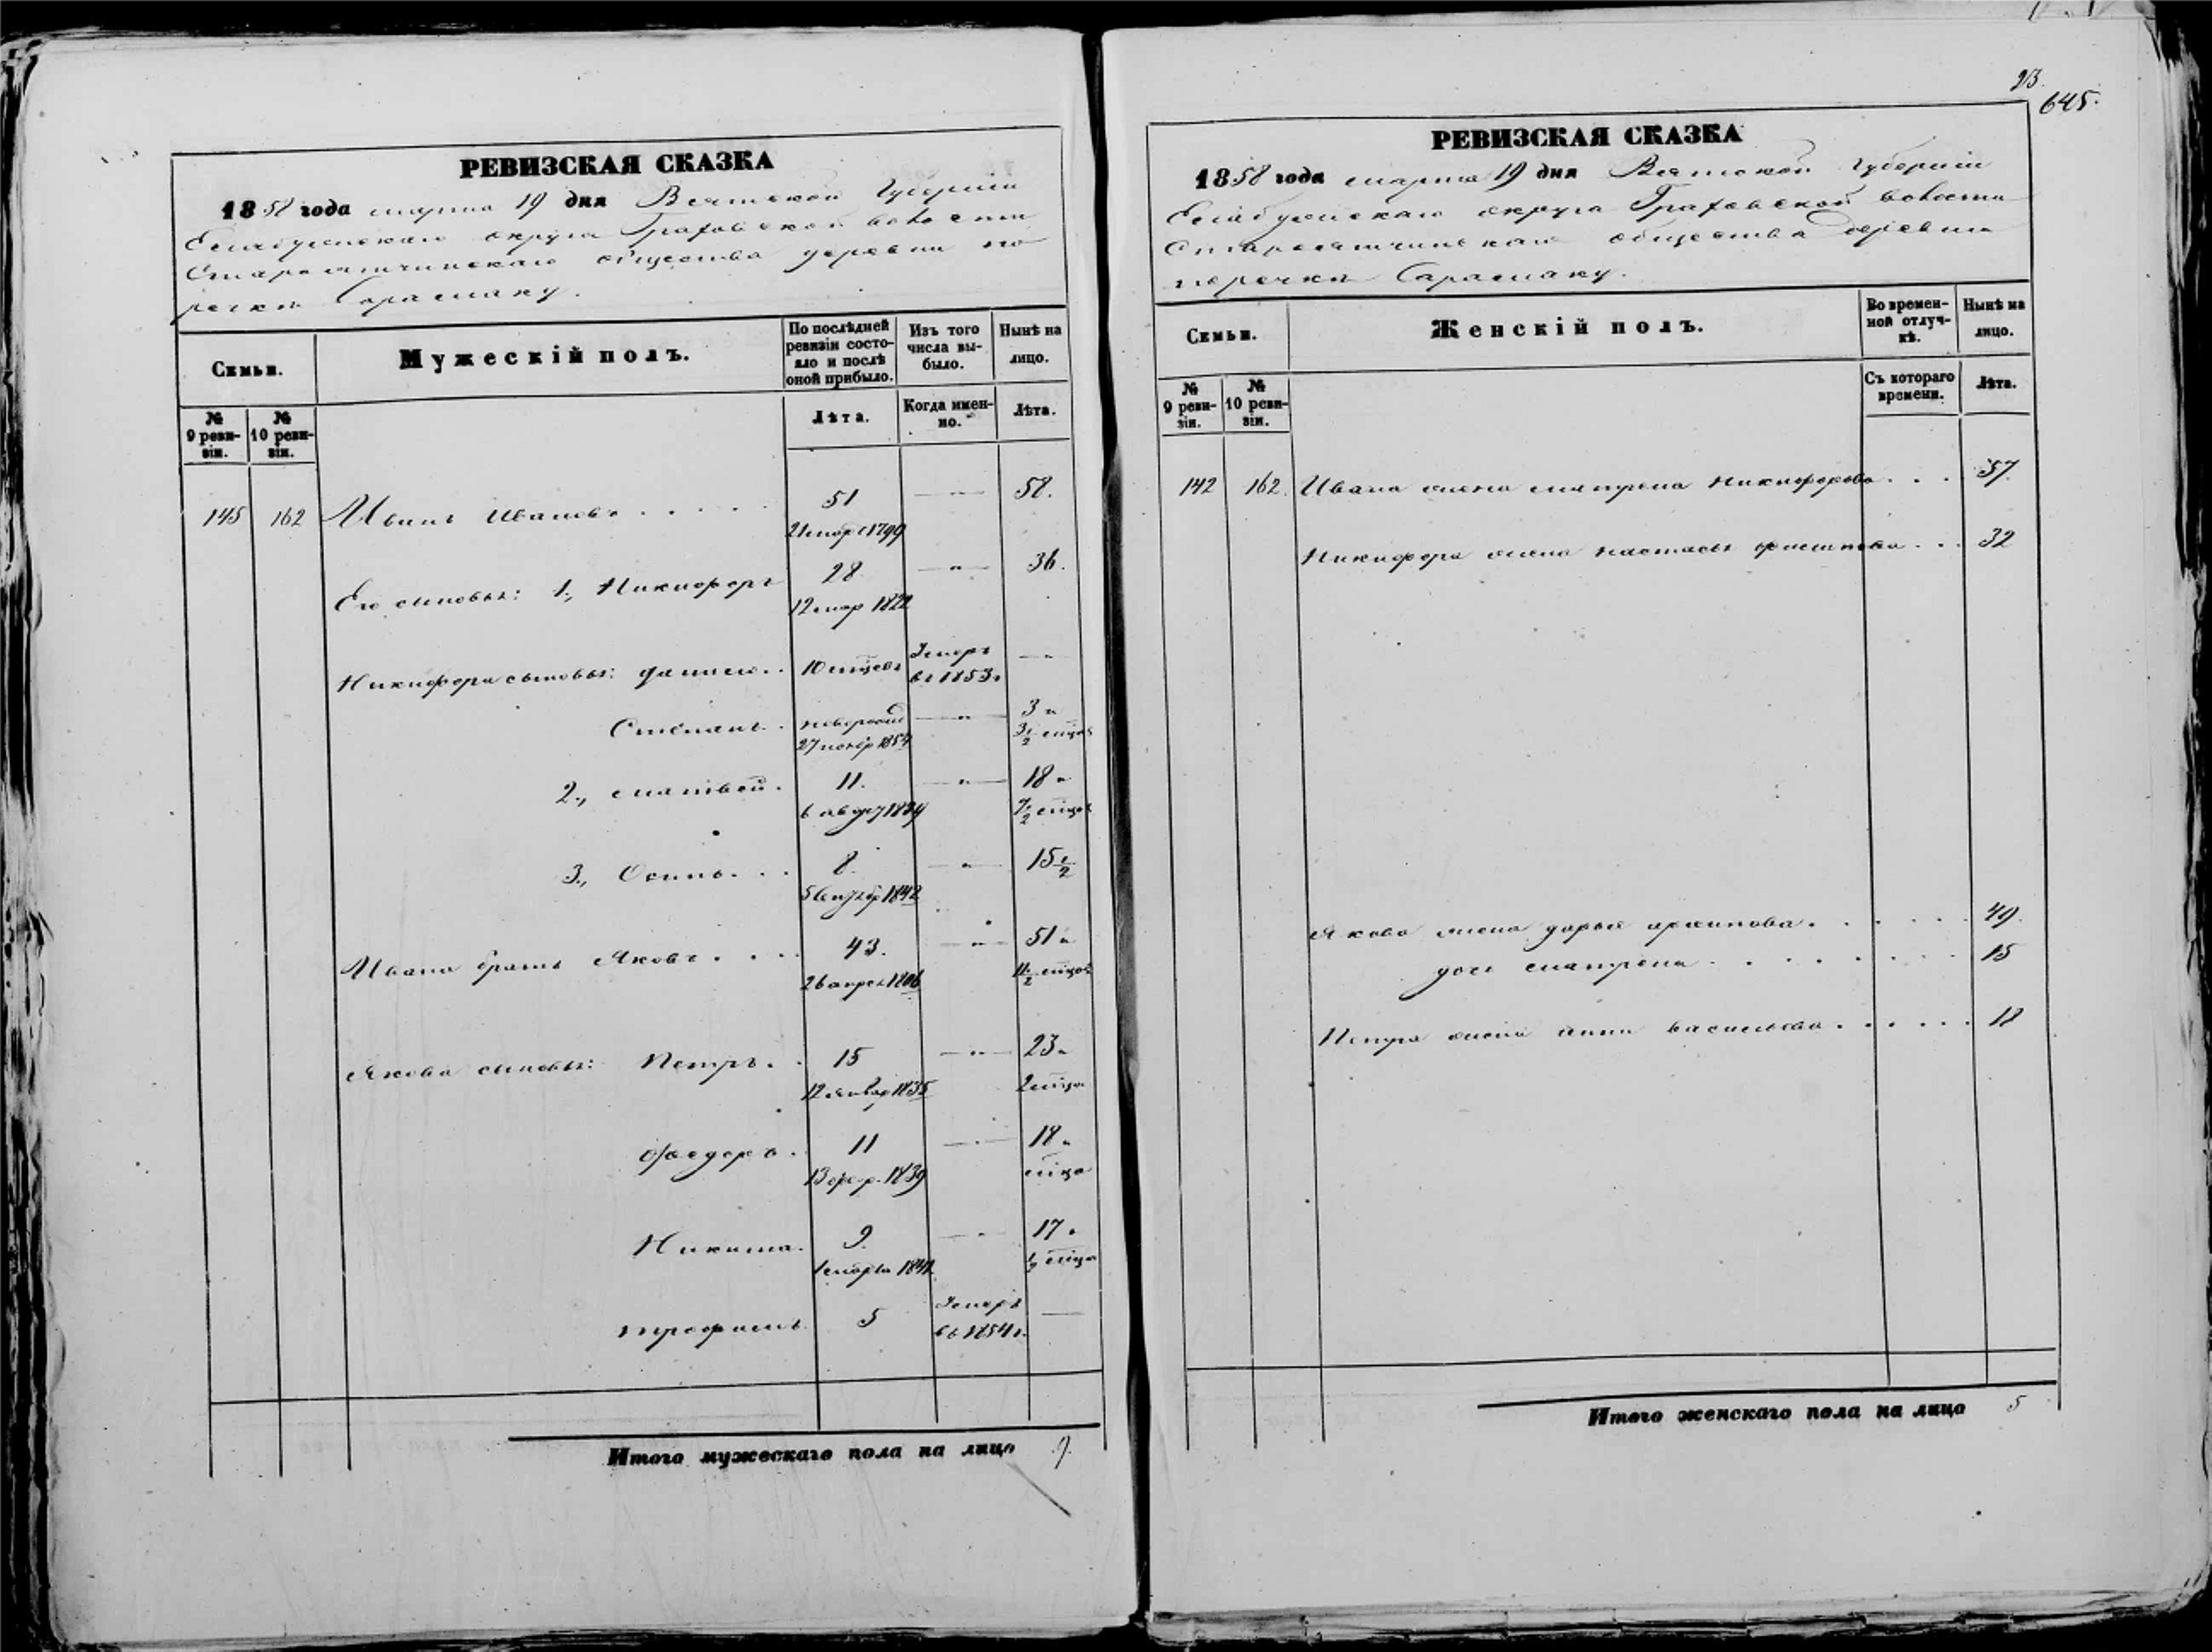 23.
645.
РЕВИЗСКАЯ СКАЗКА
1858 года марта 19 дня Вятской Губернии
Елабужскаго округа Граховской волости
Старо общества деревни по
речки Сарамаку.
Семьи.
Мужескій полъ.
По послѣдней ревизіи состояло и послѣ оной прибыло.
Изъ того числа выбыло.
Нынѣ на лицо.
№ 9 ревизіи.
№ 10 ревизіи.
Лѣта.
Когда именно.
Лѣта.
145 162 Иванъ Ивановъ 51 — " — 58.
21 мар 1799
Его сыновья: 1., Никифоръ 28 — " — 36.
12 мар 1822
Никифора сыновья: Данило 10 мцевъ Умеръ — "
въ 1853 г
Степанъ 27 ноябр 1854 — " — 3 " 3 1/2 мцов
2., Матвей 11. — " — 18 "
6 авгус 1839 7 1/2 мцов
3., Осипъ 8. — " — 15 1/2
5 Сентябр 1842
Ивана братъ Яковъ 43. — " — 51 "
26 апрел 1806 11 1/2 мцов
Якова сыновья: Петръ 15 — " — 23 "
12 январ 1835 2 мца
Федоръ 11 — " — 18 "
13 фев. 1839 мца
Никита 9. — " — 17 "
1 марта 1841 1/2 мца
Трофимъ 5 Умеръ —
въ 1854 г.
Итого мужескаго пола на лицо 9.
РЕВИЗСКАЯ СКАЗКА
1858 года марта 19 дня Вятской Губерніи
Елабужскаго округа Граховской волости
Старо общества деревни
поречки Сарамаку.
Семьи.
Женскій полъ.
Во временной отлучкѣ.
Нынѣ на лицо.
№ 9 ревизіи.
№ 10 ревизіи.
Съ котораго времени.
Лѣта.
142 162. Ивана жена Матрена Никифорова 57.
Никифора жена Настасья 32
Якова жена Дарья Архипова 49.
дочь Матрена 15
Петра жена Анна Васильева 18
Итого женскаго пола на лицо 5